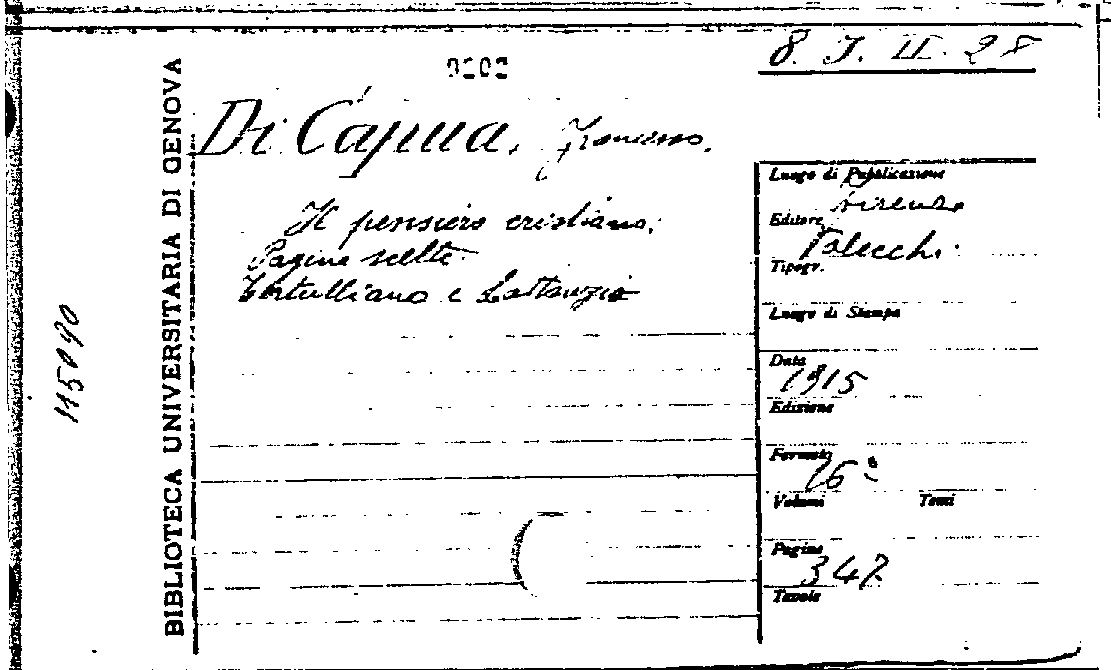 8. J. II. 28
BIBLIOTECA UNIVERSITARIA DI GENOVA
Di Capua, Francesco.
Il pensiero cristiano.
Pagine scelte.
Tertulliano e Lattanzio
115090
Luogo di Pubblicazione
Firenze
Editore
Valecchi.
Tipogr.
Luogo di Stampa
Data
1915
Edizione
Formato
16°
Volumi Tomi
Pagine
347
Tavole